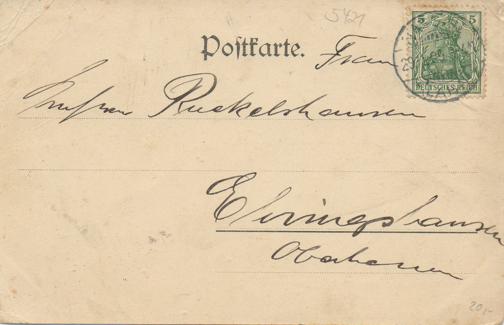 5421
5 5
DEUTSCHES REICH
Postkarte.
Frau
Ruckelshausen
Elvingshausen
Oberhessen
20,-